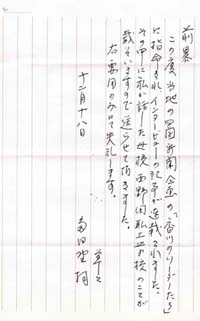 前略
この度当地の四国新聞企画の「香川のリーダーたち」
に指命され、インタビューの記事が連載されました。
その中に私が話した母校西野田職工学校のことが
載っていますので送らせて頂きました。
右要用のみにて失礼します。
草々
十二月十八日